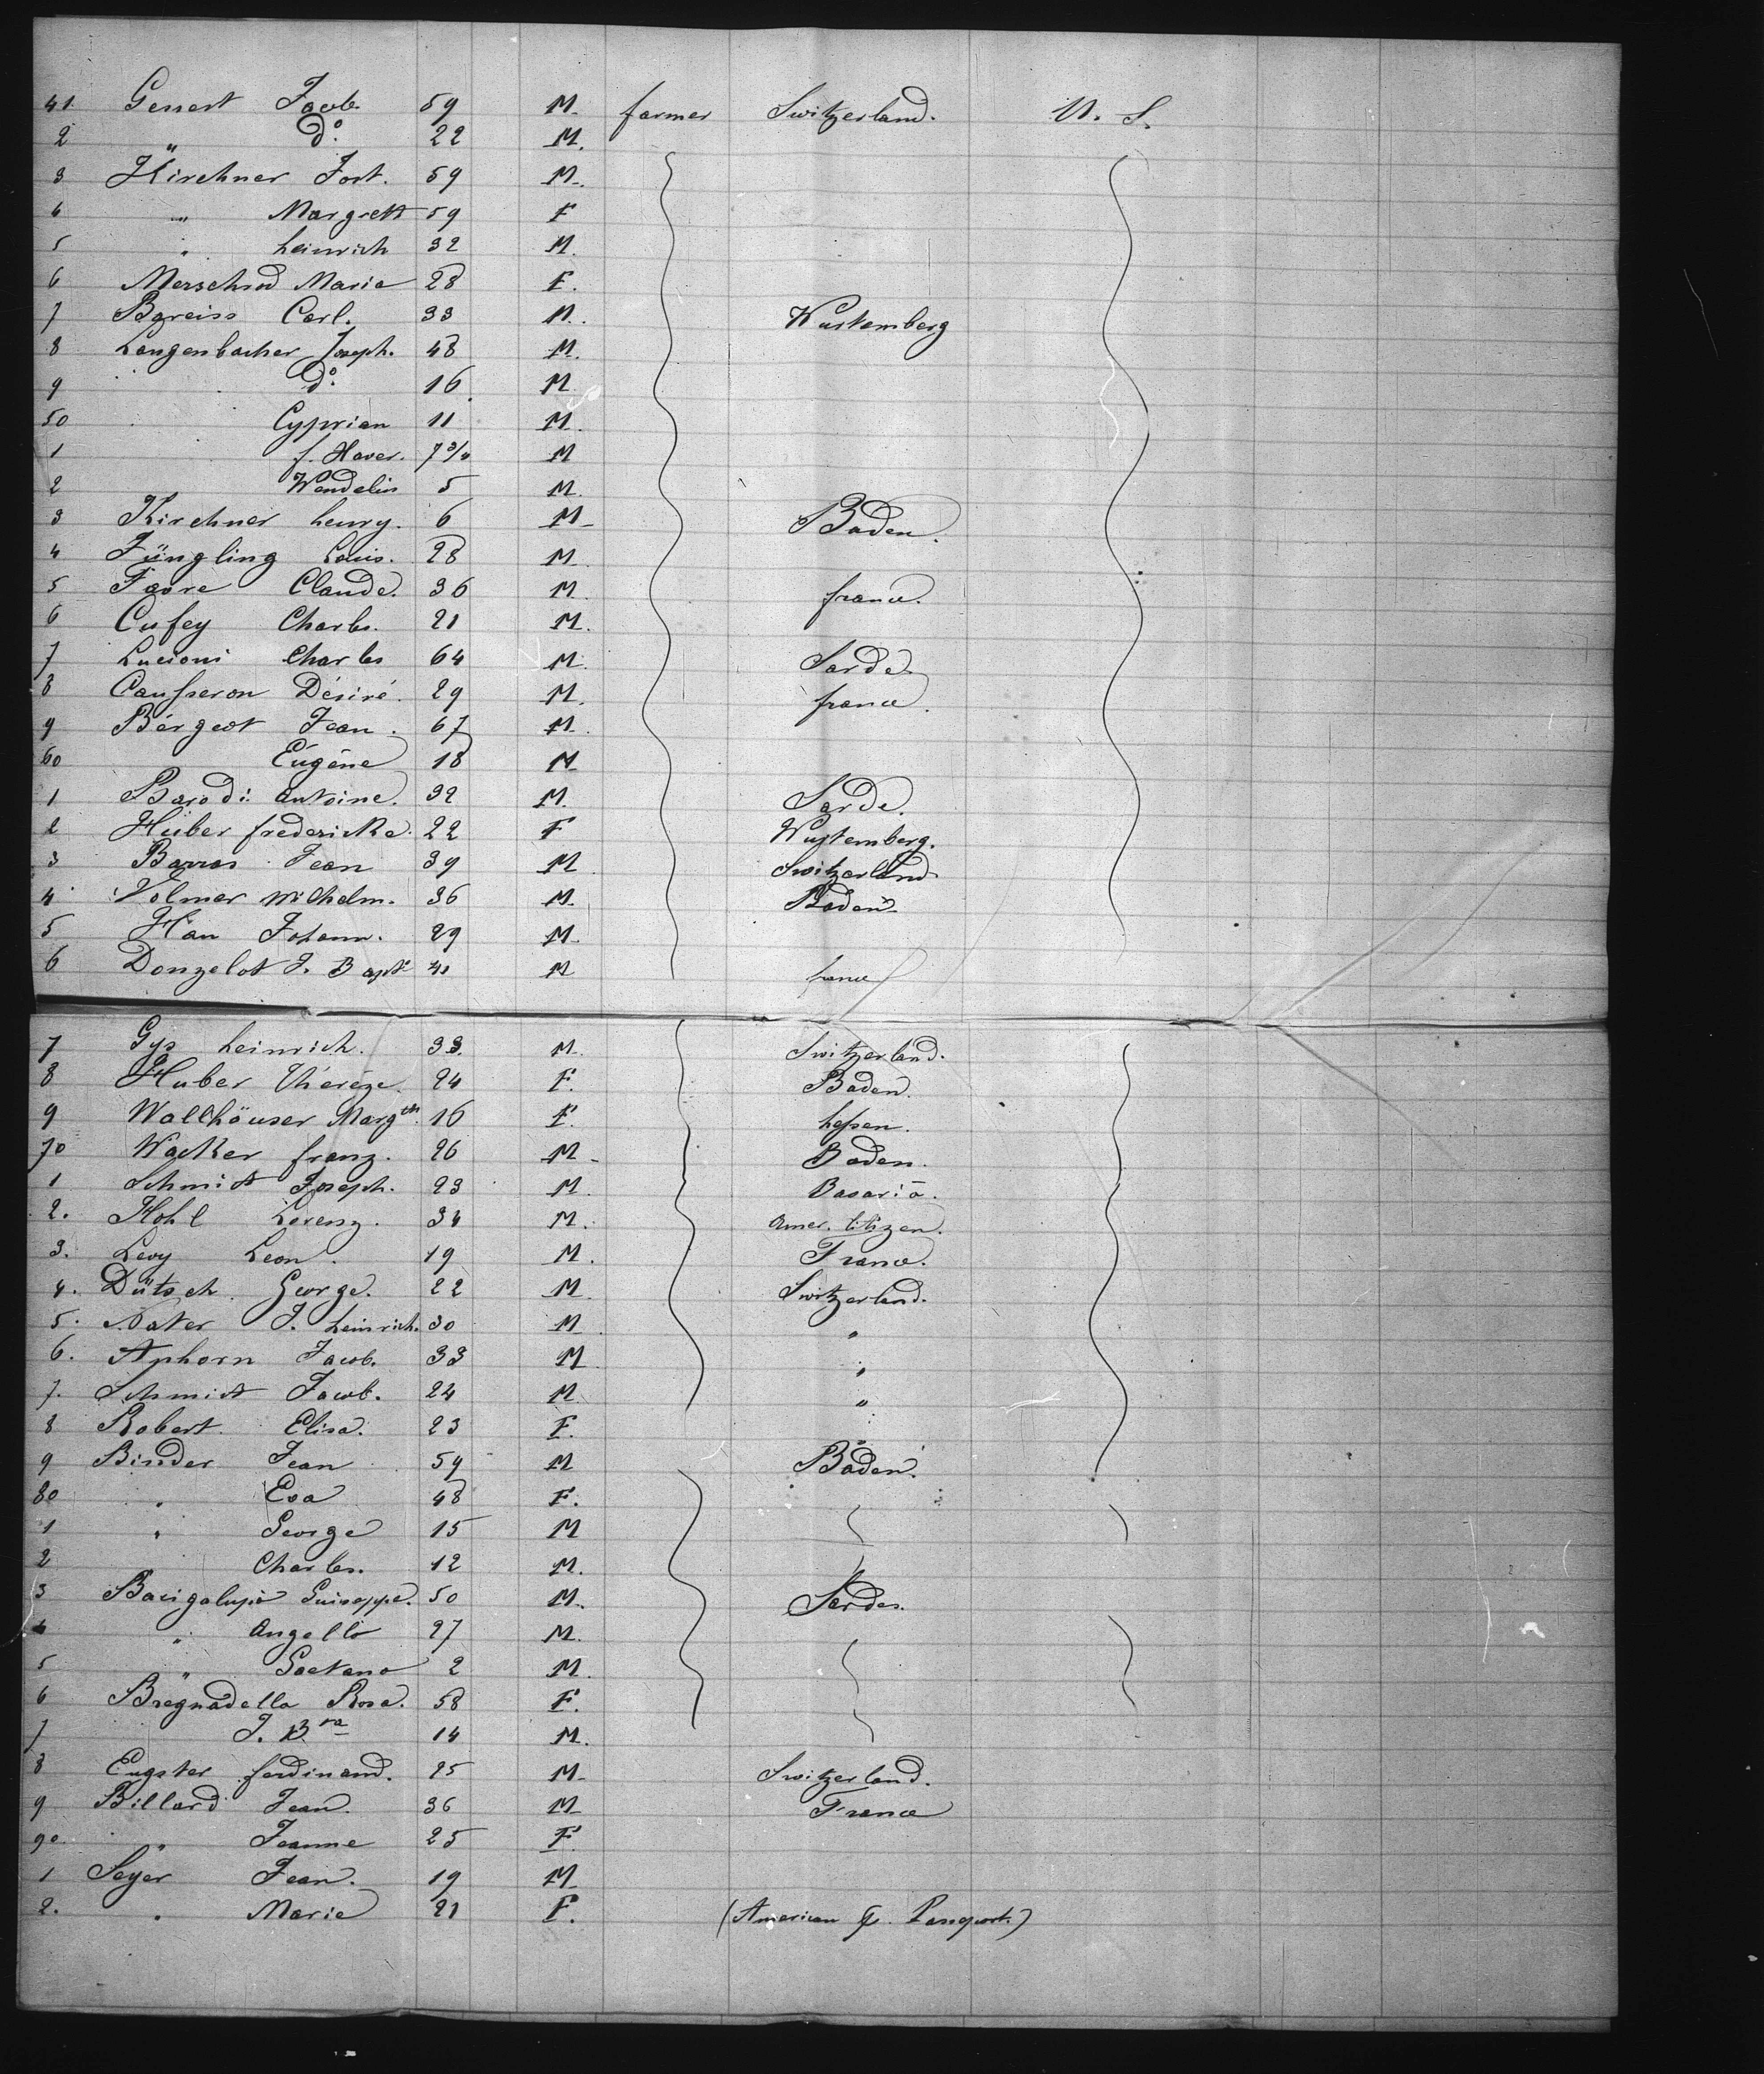 41. Gessert Jacob. 59 M. farmer Switzerland. U. S.
2 " do. 22 M.
3 Kirchner Jost. 59 M.
4 " Margreth 59 F
5 " heinrich 32 M.
6 Merschrod Maria 28 F.
7 Bareiss Carl. 33 M. Wurtemberg
8 Langenbacher Joseph. 48 M.
9 do. 16 M
50 Cyprian 11 M.
1 f. Xaver. 7 3/4 M
2 Wendelin 5 M.
3 Kirchner henry. 6 M Baden.
4 Jüngling Louis. 28 M.
5 Favre Claude. 36 M. france.
6 Cufey Charles. 21 M.
7 Lucioni Charles 64 M. Sarde.
8 Causseron Désiré. 29 M. france.
9 Bergeot Jean. 67 M.
60 Eugéne 18 M
1 Barodi antoine. 32 M. Sarde.
2 Huber fredericke. 22 F Wurtemberg.
3 Barras Jean 39 M Switzerland
4 Volmer Wilhelm. 36 M. Baden
5 Han Johann. 29 M.
6 Donzelot J. Bapte 41 M france
7 Gys heinrich. 33. M. Switzerland.
8 Huber Thérèze. 24 F. Baden.
9 Wallhäuser Margth. 16 F. hessen.
70 Wacker franz. 26 M Baden.
1 Schmidt Joseph. 23 M. Bavaria.
2. Hohl Lorenz. 34 M. Amer. Citizen.
3. Levy Leon. 19 M. France.
4. Dütsch George. 22 M. Switzerland.
5. Nater J. heinrich. 30 M. "
6. Aphorn Jacob. 33 M "
7. Schmidt Jacob. 24 M "
8 Robert Elisa. 23 F.
9 Binder Jean 59 M Baden.
80 " Eva 48 F.
1 " George 15 M
2 Charles. 12 M.
3 Bacigalupo Guiseppe. 50 M. Sardes.
4 " Angello 27 M.
5 " Gaetano 2 M.
6 Bregnadella Rosa. 58 F.
7 J. Bta 14 M.
8 Eugster ferdinand. 25 M Switzerland.
9 Billard Jean. 36 M France
90 " Jeanne 25 F
1 Seyer Jean. 19 M
2. " Marie 21 F. (American Passport.)